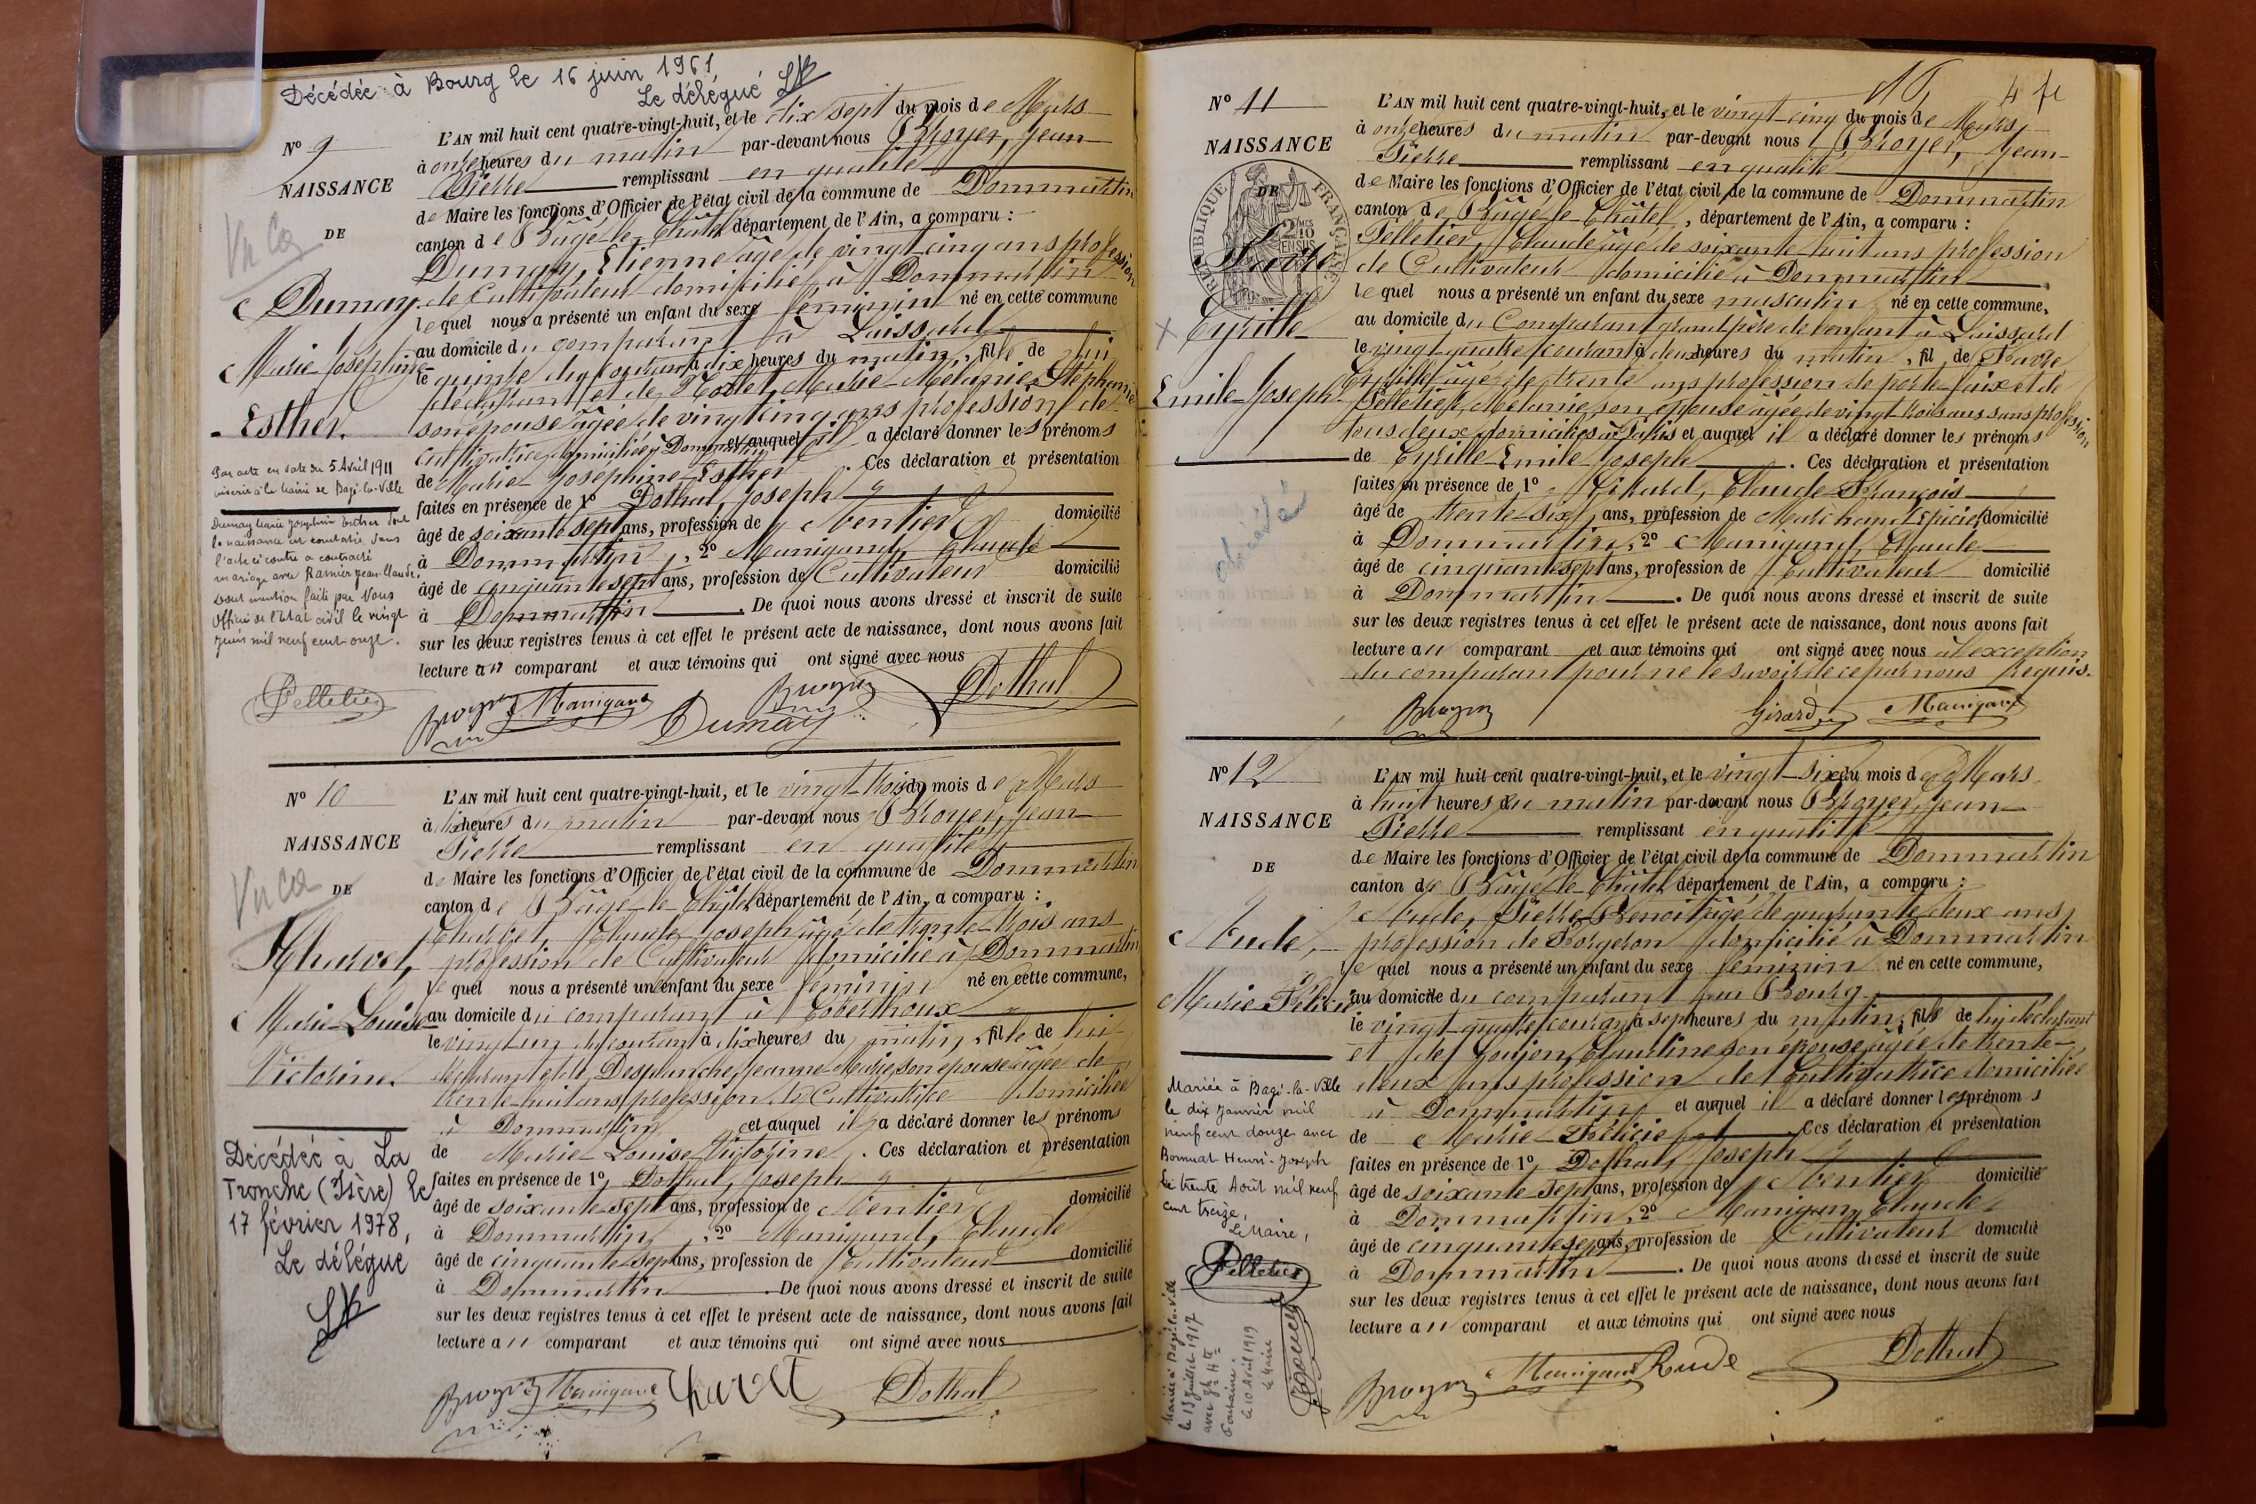 Décédée à Bourg le 16 juin 1961
Le délégué
N° 9
NAISSANCE
DE
Dumay
Marie Joséphine
Esther.
Par acte en date du 5 Avril 1911
inscrit à la Mairie de Bagé-la-Ville
Dumay Marie Joséphine Esther dont
la naissance est constatée dans
l'acte ci contre a contracté
mariage avec Ramier Jean Claude.
Dont mention faite par Nous
Officier de l'Etat civil le vingt
Juin mil neuf cent onze.
Pelletier
L'AN mil huit cent quatre-vingt-huit, et le dix sept du mois de Mars
à onze heures du matin par-devant nous Broyer, Jean
Pierre remplissant en qualité
de Maire les fonctions d'Officier de l'état civil de la commune de Dommartin
canton de Bâgé-le-Châtel département de l'Ain, a comparu :
Dumay, Etienne âgé de vingt cinq ans profession
de Cultivateur domicilié à Dommartin
lequel nous a présenté un enfant du sexe féminin né en cette commune
au domicile du comparant à Loissard
le quinze du courant à dix heures du matin, fille de lui
déclarant et de Marie-Mélanie Stéphanie
son épouse âgée de vingt cinq ans profession de
cultivatrice domiciliée à Dommartin et auquel il a déclaré donner les prénoms
de Marie Joséphine Esther . Ces déclaration et présentation
faites en présence de 1° Dothal, Joseph
âgé de soixante sept ans, profession de Rentier domicilié
à Dommartin, 2° Manigand, Claude
âgé de cinquante sept ans, profession de Cultivateur domicilié
à Dommartin . De quoi nous avons dressé et inscrit de suite
sur les deux registres tenus à cet effet le présent acte de naissance, dont nous avons fait
lecture au comparant et aux témoins qui ont signé avec nous
Broyer Manigand Dumay Broyer Dothal
N° 10
NAISSANCE
DE
Charvet,
Marie-Louise
Victorine.
Décédée à La
Tronche (Isère) le
17 février 1978,
Le délégué
L'AN mil huit cent quatre-vingt-huit, et le vingt-trois du mois de Mars
à dix heures du matin par-devant nous Broyer, Jean
Pierre remplissant en qualité
de Maire les fonctions d'Officier de l'état civil de la commune de Dommartin
canton de Bâgé-le-Châtel département de l'Ain, a comparu :
Charvet, Claude Joseph âgé de trente-trois ans
profession de Cultivateur domicilié à Dommartin
lequel nous a présenté un enfant du sexe féminin né en cette commune,
au domicile du comparant à
le vingt-un du courant à dix heures du matin, fille de lui
déclarant et de Desplanche, Jeanne Marie, son épouse âgée de
trente-huit ans profession de Cultivatrice domiciliée
à Dommartin et auquel il a déclaré donner les prénoms
de Marie Louise Victorine . Ces déclaration et présentation
faites en présence de 1° Dothal, Joseph
âgé de soixante sept ans, profession de Rentier domicilié
à Dommartin, 2° Manigand, Claude
âgé de cinquante sept ans, profession de Cultivateur domicilié
à Dommartin . De quoi nous avons dressé et inscrit de suite
sur les deux registres tenus à cet effet le présent acte de naissance, dont nous avons fait
lecture au comparant et aux témoins qui ont signé avec nous
Broyer Manigand Charvet Dothal
N° 11
NAISSANCE
DE
RÉPUBLIQUE FRANÇAISE
Favre
Cyrille
Emile-Joseph
décédé
L'AN mil huit cent quatre-vingt-huit, et le vingt-cinq du mois de Mars,
à onze heures du matin par-devant nous Broyer, Jean-
Pierre remplissant en qualité
de Maire les fonctions d'Officier de l'état civil de la commune de Dommartin
canton de Bâgé-le-Châtel, département de l'Ain, a comparu :
Pelletier, Claude âgé de soixante-huit ans profession
de Cultivateur domicilié à Dommartin
lequel nous a présenté un enfant du sexe masculin né en cette commune,
au domicile du Comparant grand père de l'enfant à Loissard
le vingt-quatre courant à deux heures du matin, fils de Favre
Cyrille âgé de trente ans profession de porte-faix et de
Pelletier, Mélanie, son épouse âgée de vingt-trois ans sans profession
tous deux domiciliés à Paris et auquel il a déclaré donner les prénoms
de Cyrille Emile Joseph . Ces déclaration et présentation
faites en présence de 1° Girard, Claude-François
âgé de trente-six ans, profession de Marchand Epicier domicilié
à Dommartin, 2° Manigand, Claude
âgé de cinquante sept ans, profession de Cultivateur domicilié
à Dommartin . De quoi nous avons dressé et inscrit de suite
sur les deux registres tenus à cet effet le présent acte de naissance, dont nous avons fait
lecture au comparant et aux témoins qui ont signé avec nous à l'exception
du comparant pour ne le savoir de ce par nous Requis.
Broyer Girard Manigand
N° 12
NAISSANCE
DE
Rude,
Marie Félicie
Mariée à Bagé-la-Ville
le dix Janvier mil
neuf cent douze avec
Bonnat Henri-Joseph
Le trente Août mil neuf
cent treize,
Le Maire,
Pelletier
Mariée à Bagé-la-Ville
le 13 Juillet 1917
le 10 Avril 1919
Le Maire
L'AN mil huit cent quatre-vingt-huit, et le vingt-six du mois de Mars
à huit heures du matin par-devant nous Broyer, Jean
Pierre remplissant en qualité
de Maire les fonctions d'Officier de l'état civil de la commune de Dommartin
canton de Bâgé-le-Châtel département de l'Ain, a comparu :
Rude, Pierre Benoit âgé de quarante deux ans,
profession de Forgeron domicilié à Dommartin
lequel nous a présenté un enfant du sexe féminin né en cette commune,
au domicile du comparant au Bourg
le vingt-quatre courant à sept heures du matin, fille de lui déclarant
et de Goujon, Claudine son épouse âgée de trente-
deux ans profession de Cultivatrice domiciliée
à Dommartin et auquel il a déclaré donner les prénoms
de Marie-Félicie . Ces déclaration et présentation
faites en présence de 1° Dothal, Joseph
âgé de soixante-sept ans, profession de Rentier domicilié
à Dommartin, 2° Manigand, Claude
âgé de cinquante sept ans, profession de Cultivateur domicilié
à Dommartin . De quoi nous avons dressé et inscrit de suite
sur les deux registres tenus à cet effet le présent acte de naissance, dont nous avons fait
lecture au comparant et aux témoins qui ont signé avec nous
Broyer Manigand Rude Dothal